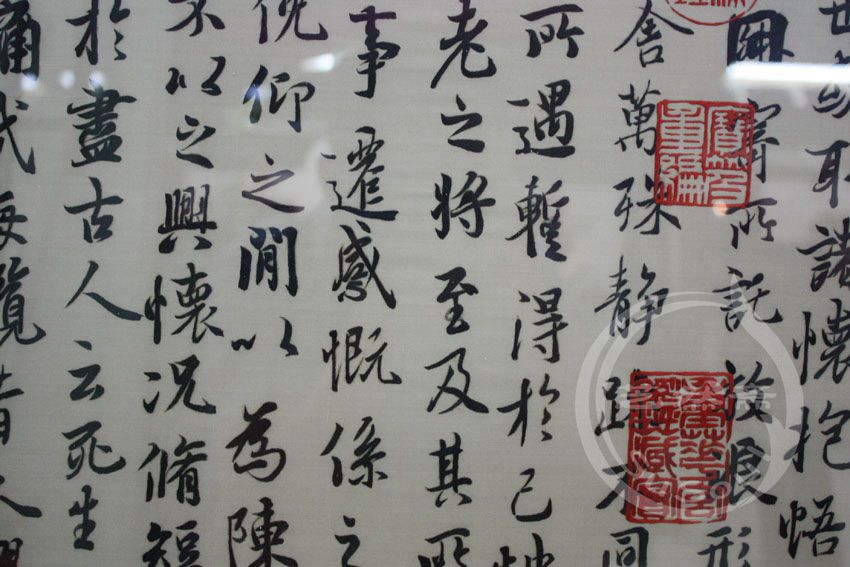 世或取諸懷抱悟
因寄所託放浪形
舍萬殊静躁不同
所遇蹔得於己快
老之将至及其所
事遷感慨係之
俛仰之閒以為陳
不以之興懷況脩短
於盡古人云死生
痛哉每覽昔人興